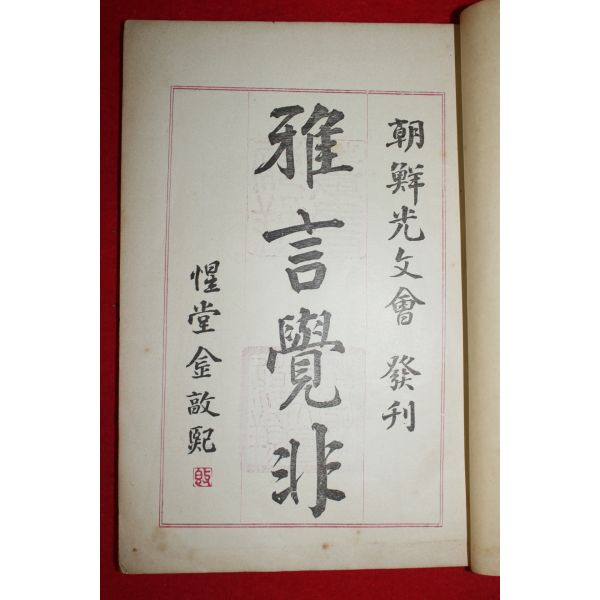 朝鮮光文會 發刊
雅言覺非
惺堂金敦熙